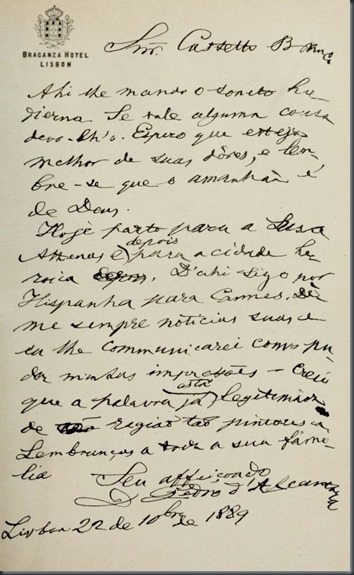 BRAGANZA HOTEL
LISBOM
Snr. Castello B
Ahi lhe mando o soneto
Se vale alguma cousa
devo-lh'o. Espero que esteja
melhor de suas dôres, e lem-
bre-se que o amanhãa é
de Deus.
Hoje parto para a Lusa
depois
Athenas e para a cidade he-
roica D'ahi sigo por
Hispanha para Cannes. Dê
me sempre noticias suas e
eu lhe communicarei como pu-
der minhas impressões - Creio
está
que a palavra já legitimada
de região tão
Lembranças a toda a sua fami-
lia
Seu affeiçoado
D. Pedro d'Alcantara
Lisboa 22 de 10bro de 1889